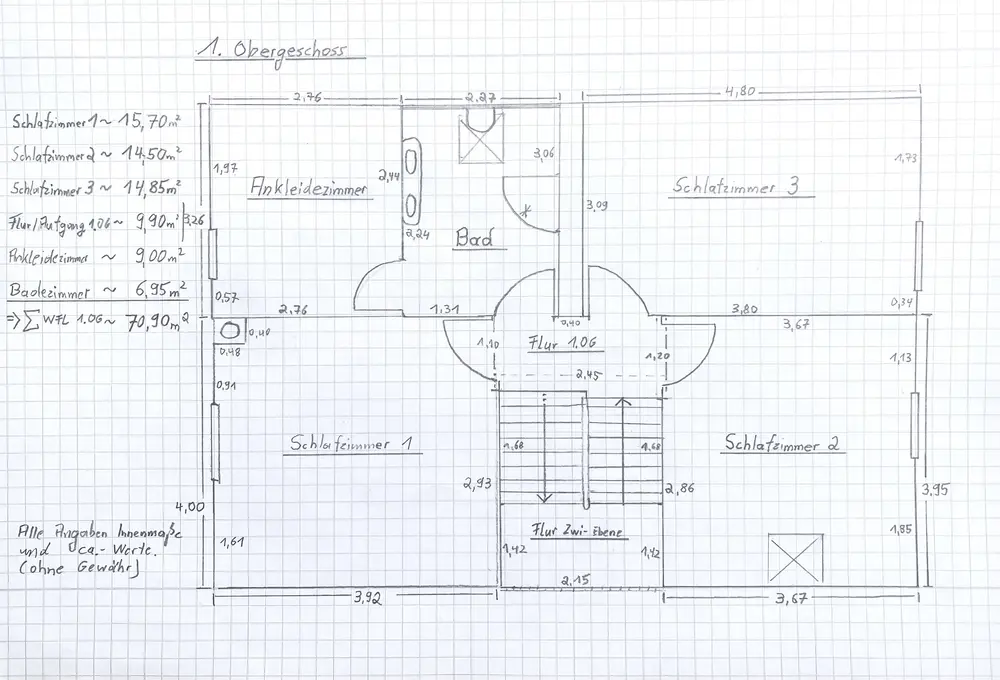 1. Obergeschoss
Schlafzimmer 1 ~ 15,70m²
Schlafzimmer 2 ~ 14,50m²
Schlafzimmer 3 ~ 14,85m²
Flur/Aufgang 1.OG ~ 9,90m²
Ankleidezimmer ~ 9,00m²
Badezimmer ~ 6,95m²
=> ∑ WFL 1.OG ~ 70,90m²
2,76
2,27
4,80
1,97
3,26
Ankleidezimmer
2,44
2,24
Bad
3,06
3,09
Schlafzimmer 3
1,73
0,57
2,76
1,31
0,40
3,80
0,34
3,67
0,40
0,48
0,91
1,10
Flur 1.OG
1,20
2,45
1,13
Schlafzimmer 1
1,68
1,68
Schlafzimmer 2
2,93
2,86
3,95
4,00
1,61
Flur Zwi-Ebene
1,42
1,42
1,85
2,15
3,92
3,67
Alle Angaben Innenmaße
und ca.-Werte.
(ohne Gewähr)